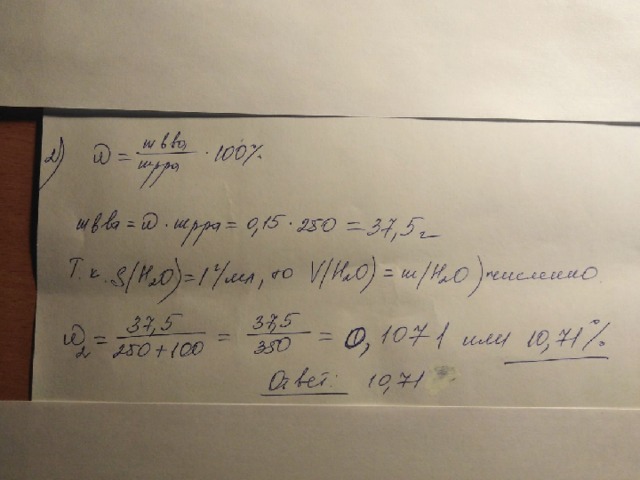 2) ω = mв-ва/mр-ра · 100%
mв-ва = ω · mр-ра = 0,15 · 250 = 37,5 г
Т.к. ρ(H₂O) = 1 г/мл, то V(H₂O) = m(H₂O) численно.
ω₂ = 37,5/(250+100) = 37,5/350 = 0,1071 или 10,71%
Ответ: 10,71